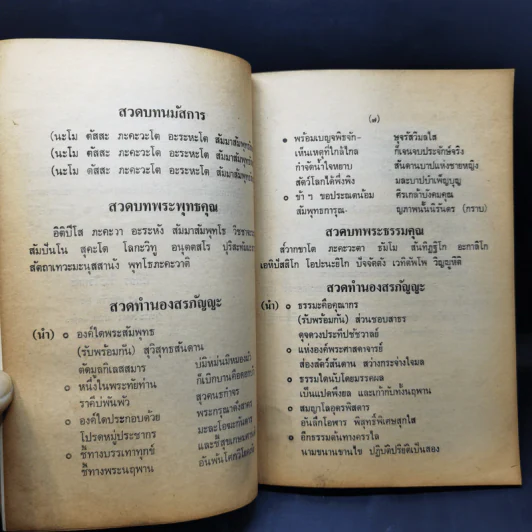 สวดบทนมัสการ
(นะโม ตัสสะ ภะคะวะโต อะระหะโต สัมมาสัมพุทธ
(นะโม ตัสสะ ภะคะวะโต อะระหะโต สัมมาสัมพุทธ
(นะโม ตัสสะ ภะคะวะโต อะระหะโต สัมมาสัมพุทธ
สวดบทพระพุทธคุณ
อิติปิโส ภะคะวา อะระหัง สัมมาสัมพุทโธ วิชชา
สัมปันโน สุคะโต โลกะวิทู อนุตตสโร ปุริสะทัมมะ
สัตถาเทวะมะนุสสานัง พุทโธภะคะวาติ
สวดทำนองสรภัญญะ
(นำ) ๐ องค์ใดพระสัมพุทธ
(รับพร้อมกัน) สุวิสุทธสันดาน
ตัดมูลกิเลสมาร บ่มิหม่นมิหมองมัว
๐ หนึ่งในพระทัยท่าน ก็เบิกบานคือดอกบัว
ราคีบ่พันพัว สุวคนธกำจร
๐ องค์ใดประกอบด้วย พระกรุณาดังสาคร
โปรดหมู่ประชากร มะละโอฆะกันดาร
๐ ชี้ทางบรรเทาทุกข์ และชี้สุขเกษมศานต์
ชี้ทางพระนฤพาน อันพ้นโศกวิโยคภัย
(๗)
๐ พร้อมเบญจพิธจัก- ษุจรัสวิมลใส
เห็นเหตุที่ใกล้ไกล ก็เจนจบประจักษ์จริง
กำจัดน้ำใจหยาบ สันดานบาปแห่งชายหญิง
สัตว์โลกได้พึ่งพิง มละบาปบำเพ็ญบุญ
๐ ข้า ฯ ขอประณตน้อม ศิรเกล้าบังคมคุณ
สัมพุทธการุญ- ญภาพนั้นนิรันดร (กราบ)
สวดบทพระธรรมคุณ
ส๎วากขาโต ภะคะวะตา ธัมโม สันทิฏฐิโก อะกาลิโก
เอหิปัสสิโก โอปะนะยิโก ปัจจัตตัง เวทิตัพโพ วิญญูหิติ
สวดทำนองสรภัญญะ
(นำ) ๐ ธรรมะคือคุณากร
(รับพร้อมกัน) ส่วนชอบสาธร
ดุจดวงประทีปชัชวาลย์
๐ แห่งองค์พระศาสดาจารย์
ส่องสัตว์สันดาน สว่างกระจ่างใจมล
๐ ธรรมใดนับโดยมรรคผล
เป็นแปดพึงยล และเก้ากับทั้งนฤพาน
๐ สมญาโลอุดรพิสดาร
อันลึกโอฬาร พิสุทธิ์พิเศษสุกใส
๐ อีกธรรมต้นทางครรไล
นามขนานขานไข ปฏิบัติปริยัติเป็นสอง